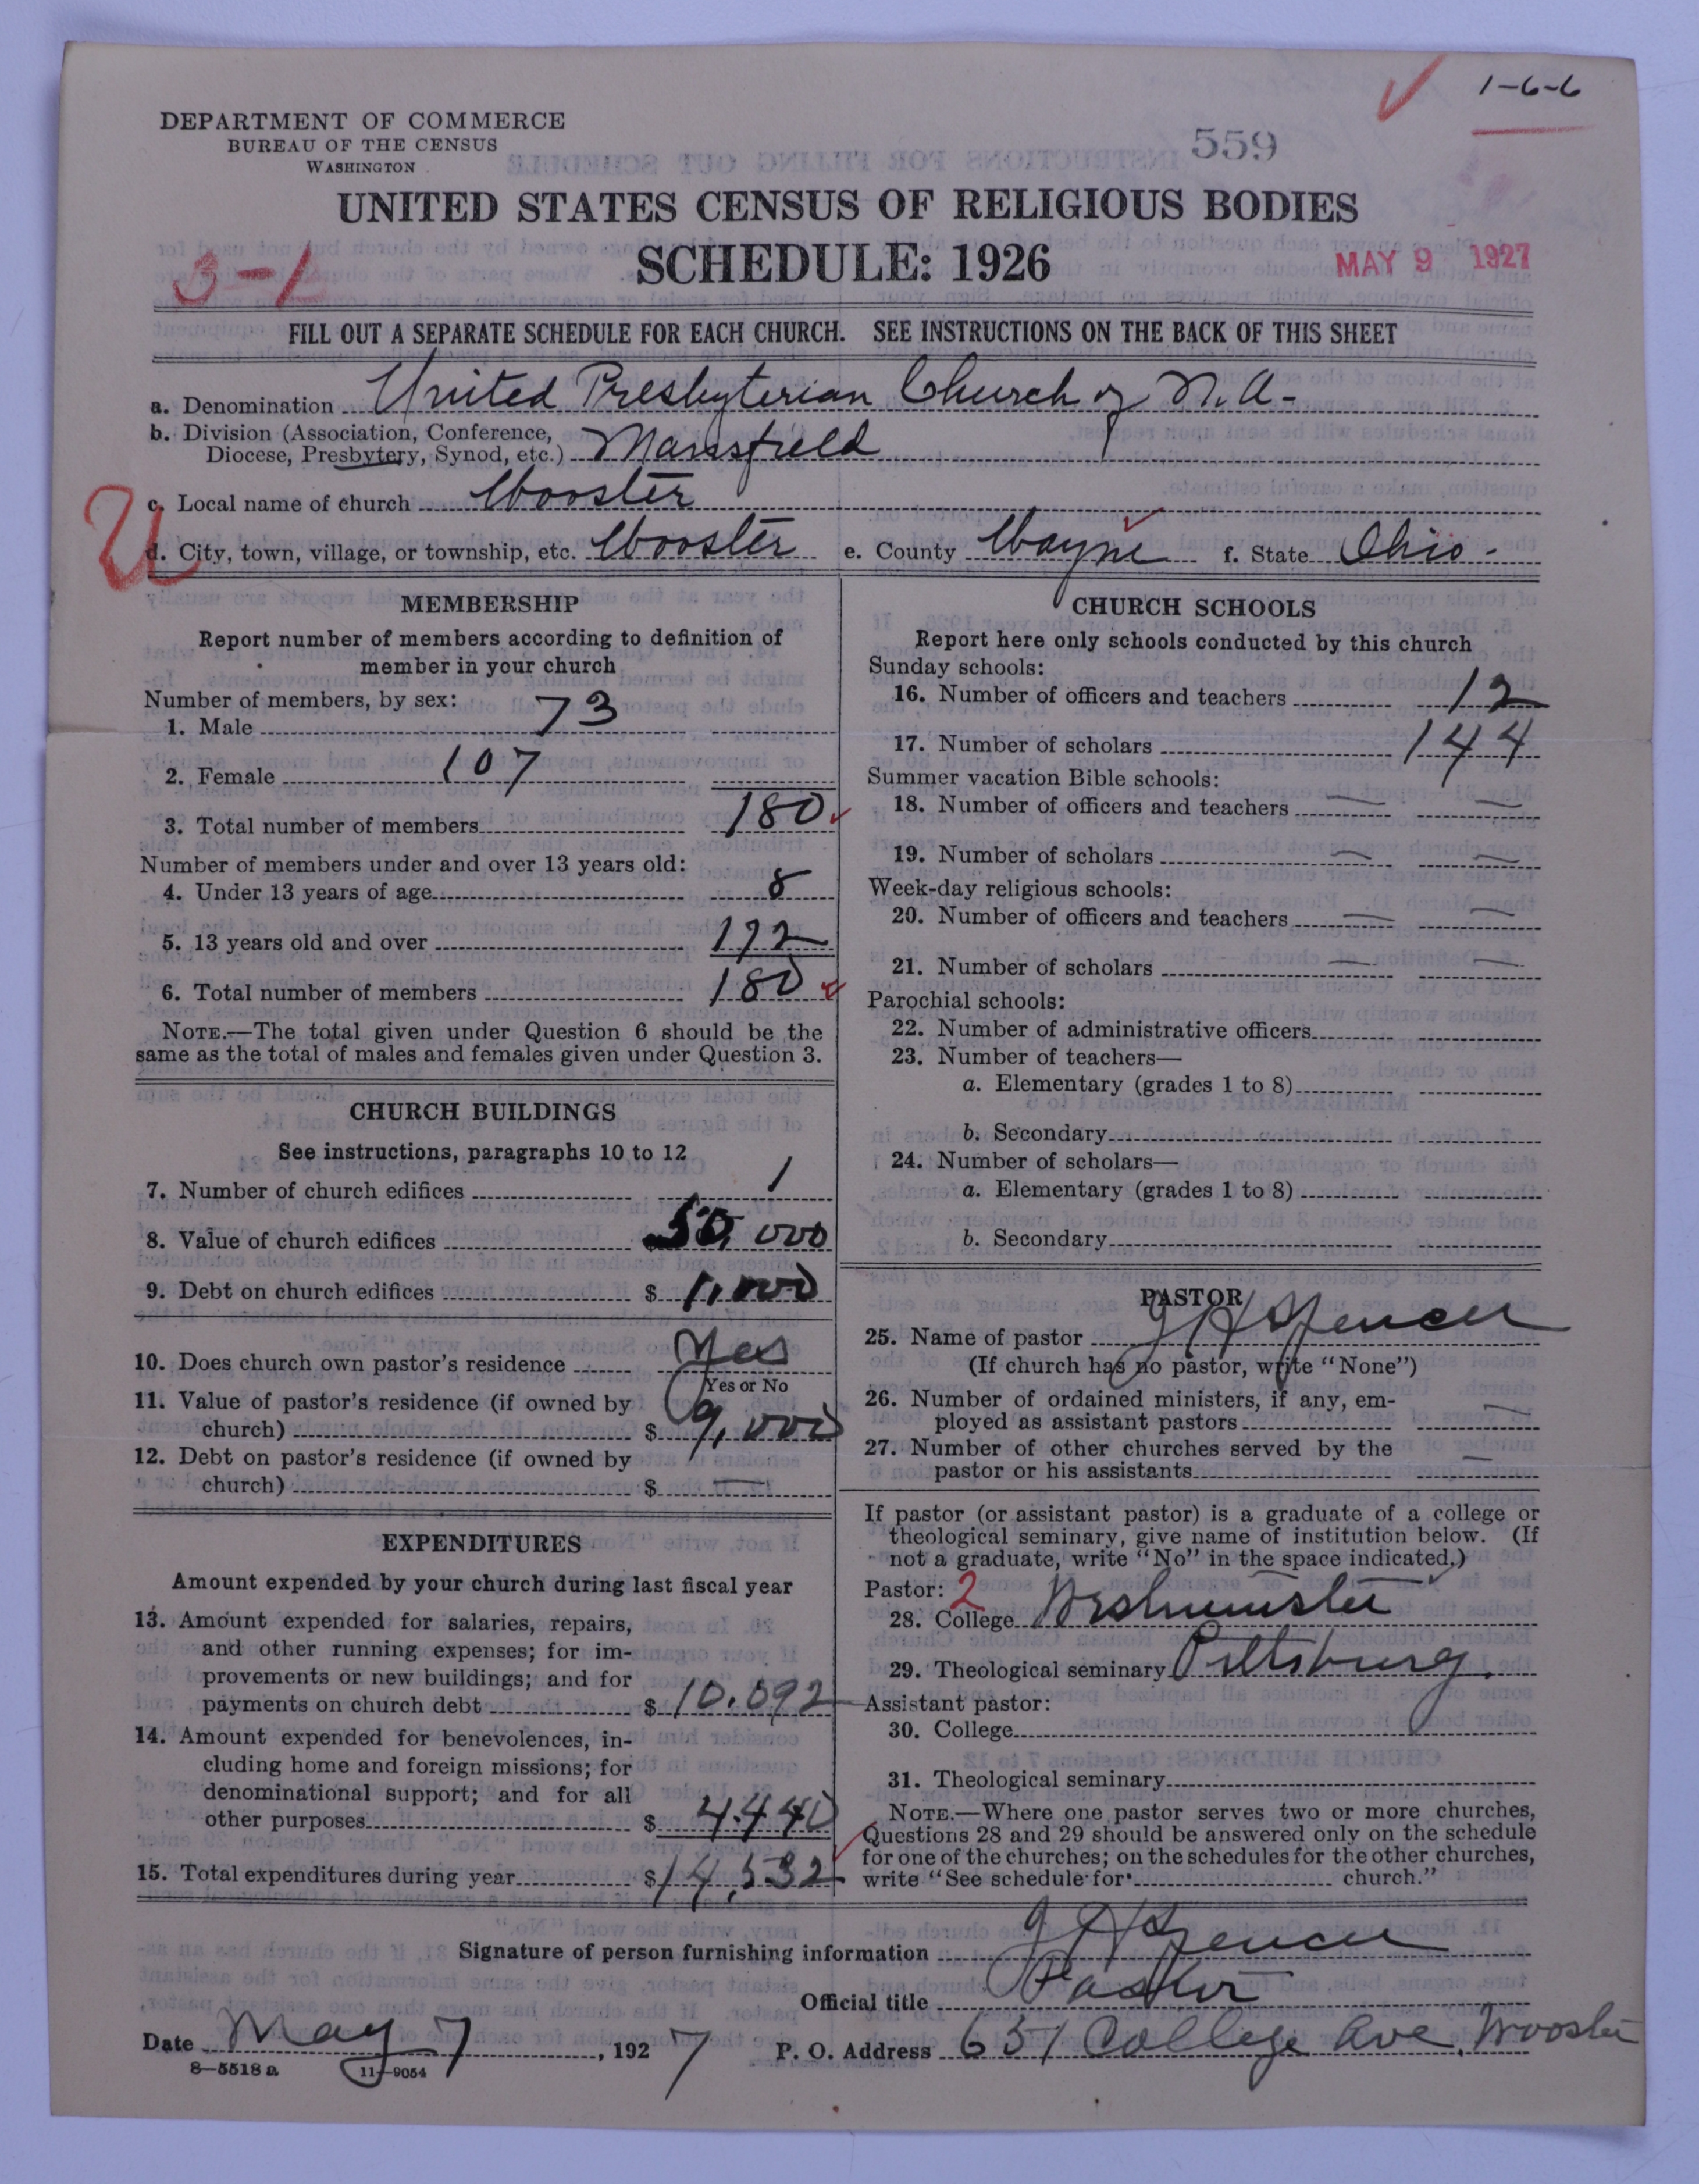 1-6-6
DEPARTMENT OF COMMERCE
BUREAU OF THE CENSUS
WASHINGTON
559
UNITED STATES CENSUS OF RELIGIOUS BODIES
SCHEDULE: 1926
3-1
MAY 9 1927
FILL OUT A SEPARATE SCHEDULE FOR EACH CHURCH. SEE INSTRUCTIONS ON THE BACK OF THIS SHEET
a. Denomination United Presbyterian Church of N.A-
b. Division (Association, Conference,
Diocese, Presbytery, Synod, etc.) Mansfield
c. Local name of church Wooster
U
d. City, town, village, or township, etc. Wooster e. County Wayne f. State Ohio-
MEMBERSHIP
Report number of members according to definition of
member in your church
Number of members, by sex:
1. Male 73
2. Female 107
3. Total number of members 180
Number of members under and over 13 years old:
4. Under 13 years of age 8
5. 13 years old and over 172
6. Total number of members 180
NOTE.—The total given under Question 6 should be the
same as the total of males and females given under Question 3.
CHURCH BUILDINGS
See instructions, paragraphs 10 to 12
7. Number of church edifices 1
8. Value of church edifices 50,000
9. Debt on church edifices $ 1,000
10. Does church own pastor's residence Yes
Yes or No
11. Value of pastor's residence (if owned by
church) $ 9,000
12. Debt on pastor's residence (if owned by
church) $ —
EXPENDITURES
Amount expended by your church during last fiscal year
13. Amount expended for salaries, repairs,
and other running expenses; for im-
provements or new buildings; and for
payments on church debt $ 10.092
14. Amount expended for benevolences, in-
cluding home and foreign missions; for
denominational support; and for all
other purposes $ 4.440
15. Total expenditures during year $ 14,532
CHURCH SCHOOLS
Report here only schools conducted by this church
Sunday schools:
16. Number of officers and teachers 12
17. Number of scholars 144
Summer vacation Bible schools:
18. Number of officers and teachers — —
19. Number of scholars — —
Week-day religious schools:
20. Number of officers and teachers — —
21. Number of scholars — —
Parochial schools:
22. Number of administrative officers
23. Number of teachers—
a. Elementary (grades 1 to 8)
b. Secondary
24. Number of scholars—
a. Elementary (grades 1 to 8)
b. Secondary
PASTOR
25. Name of pastor J H Spencer
(If church has no pastor, write "None")
26. Number of ordained ministers, if any, em-
ployed as assistant pastors —
27. Number of other churches served by the
pastor or his assistants —
If pastor (or assistant pastor) is a graduate of a college or
theological seminary, give name of institution below. (If
not a graduate, write "No" in the space indicated.)
Pastor: 2
28. College Westminster
29. Theological seminary Pittsburg.
Assistant pastor:
30. College
31. Theological seminary
NOTE.—Where one pastor serves two or more churches,
Questions 28 and 29 should be answered only on the schedule
for one of the churches; on the schedules for the other churches,
write "See schedule for church."
Signature of person furnishing information J H Spencer
Official title Pastor
Date May 7, 1927 P. O. Address 651 College Ave, Wooster
8—5518 a 11—9054